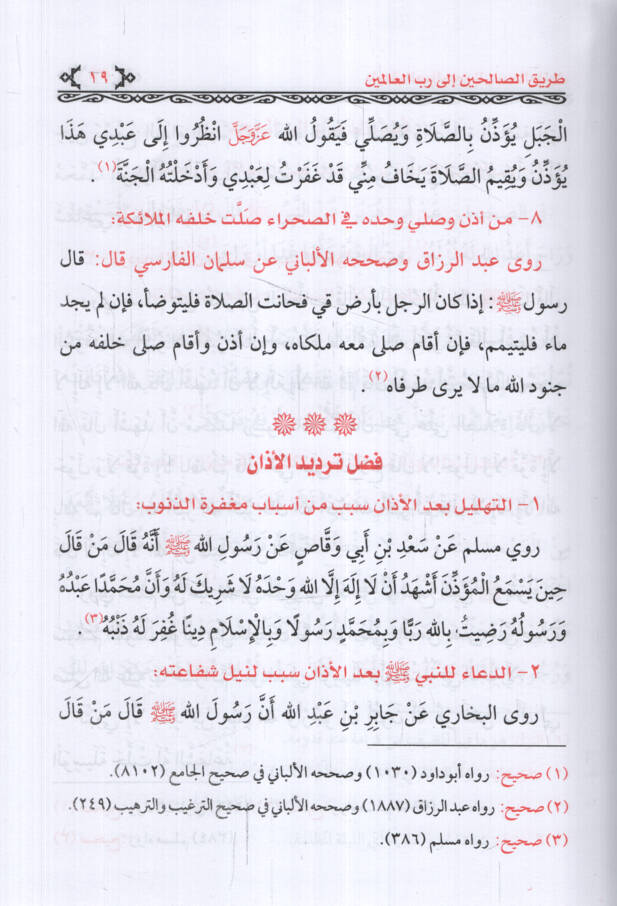 طريق الصالحين إلى رب العالمين
٢٩
الْجَبَلِ يُؤَذِّنُ بِالصَّلَاةِ وَيُصَلِّي فَيَقُولُ الله عَزَّوَجَلَّ انْظُرُوا إِلَى عَبْدِي هَذَا
يُؤَذِّنُ وَيُقِيمُ الصَّلَاةَ يَخَافُ مِنِّي قَدْ غَفَرْتُ لِعَبْدِي وَأَدْخَلْتُهُ الْجَنَّةَ(١).
٨- من أذن وصلي وحده في الصحراء صَلَّت خلفه الملائكة:
روى عبد الرزاق وصححه الألباني عن سلمان الفارسي قال: قال
رسول ﷺ: إذا كان الرجل بأرض قي فحانت الصلاة فليتوضأ، فإن لم يجد
ماء فليتيمم، فإن أقام صلى معه ملكاه، وإن أذن وأقام صلى خلفه من
جنود الله ما لا يرى طرفاه(٢)
فضل ترديد الأذان
١- التهليل بعد الأذان سبب من أسباب مغفرة الذنوب:
روي مسلم عَنْ سَعْدِ بْنِ أَبِي وَقَّاصٍ عَنْ رَسُولِ الله ﷺ أَنَّهُ قَالَ مَنْ قَالَ
حِينَ يَسْمَعُ الْمُؤَذِّنَ أَشْهَدُ أَنْ لَا إِلَهَ إِلَّا الله وَحْدَهُ لَا شَرِيكَ لَهُ وَأَنَّ مُحَمَّدًا عَبْدُهُ
وَرَسُولُهُ رَضِيتُ بِالله رَبًّا وَبِمُحَمَّدٍ رَسُولًا وَبِالْإِسْلَامِ دِينًا غُفِرَ لَهُ ذَنْبُهُ(٣).
٢- الدعاء للنبي ﷺ بعد الأذان سبب لنيل شفاعته:
روى البخاري عَنْ جَابِرِ بْنِ عَبْدِ الله أَنَّ رَسُولَ الله ﷺ قَالَ مَنْ قَالَ
(١) صحيح: رواه أبو داود (١٠٣٠) وصححه الألباني في صحيح الجامع (٨١٠٢).
(٢) صحيح: رواه عبد الرزاق (١٨٨٧) وصححه الألباني في صحيح الترغيب والترهيب (٢٤٩).
(٣) صحيح: رواه مسلم (٣٨٦).